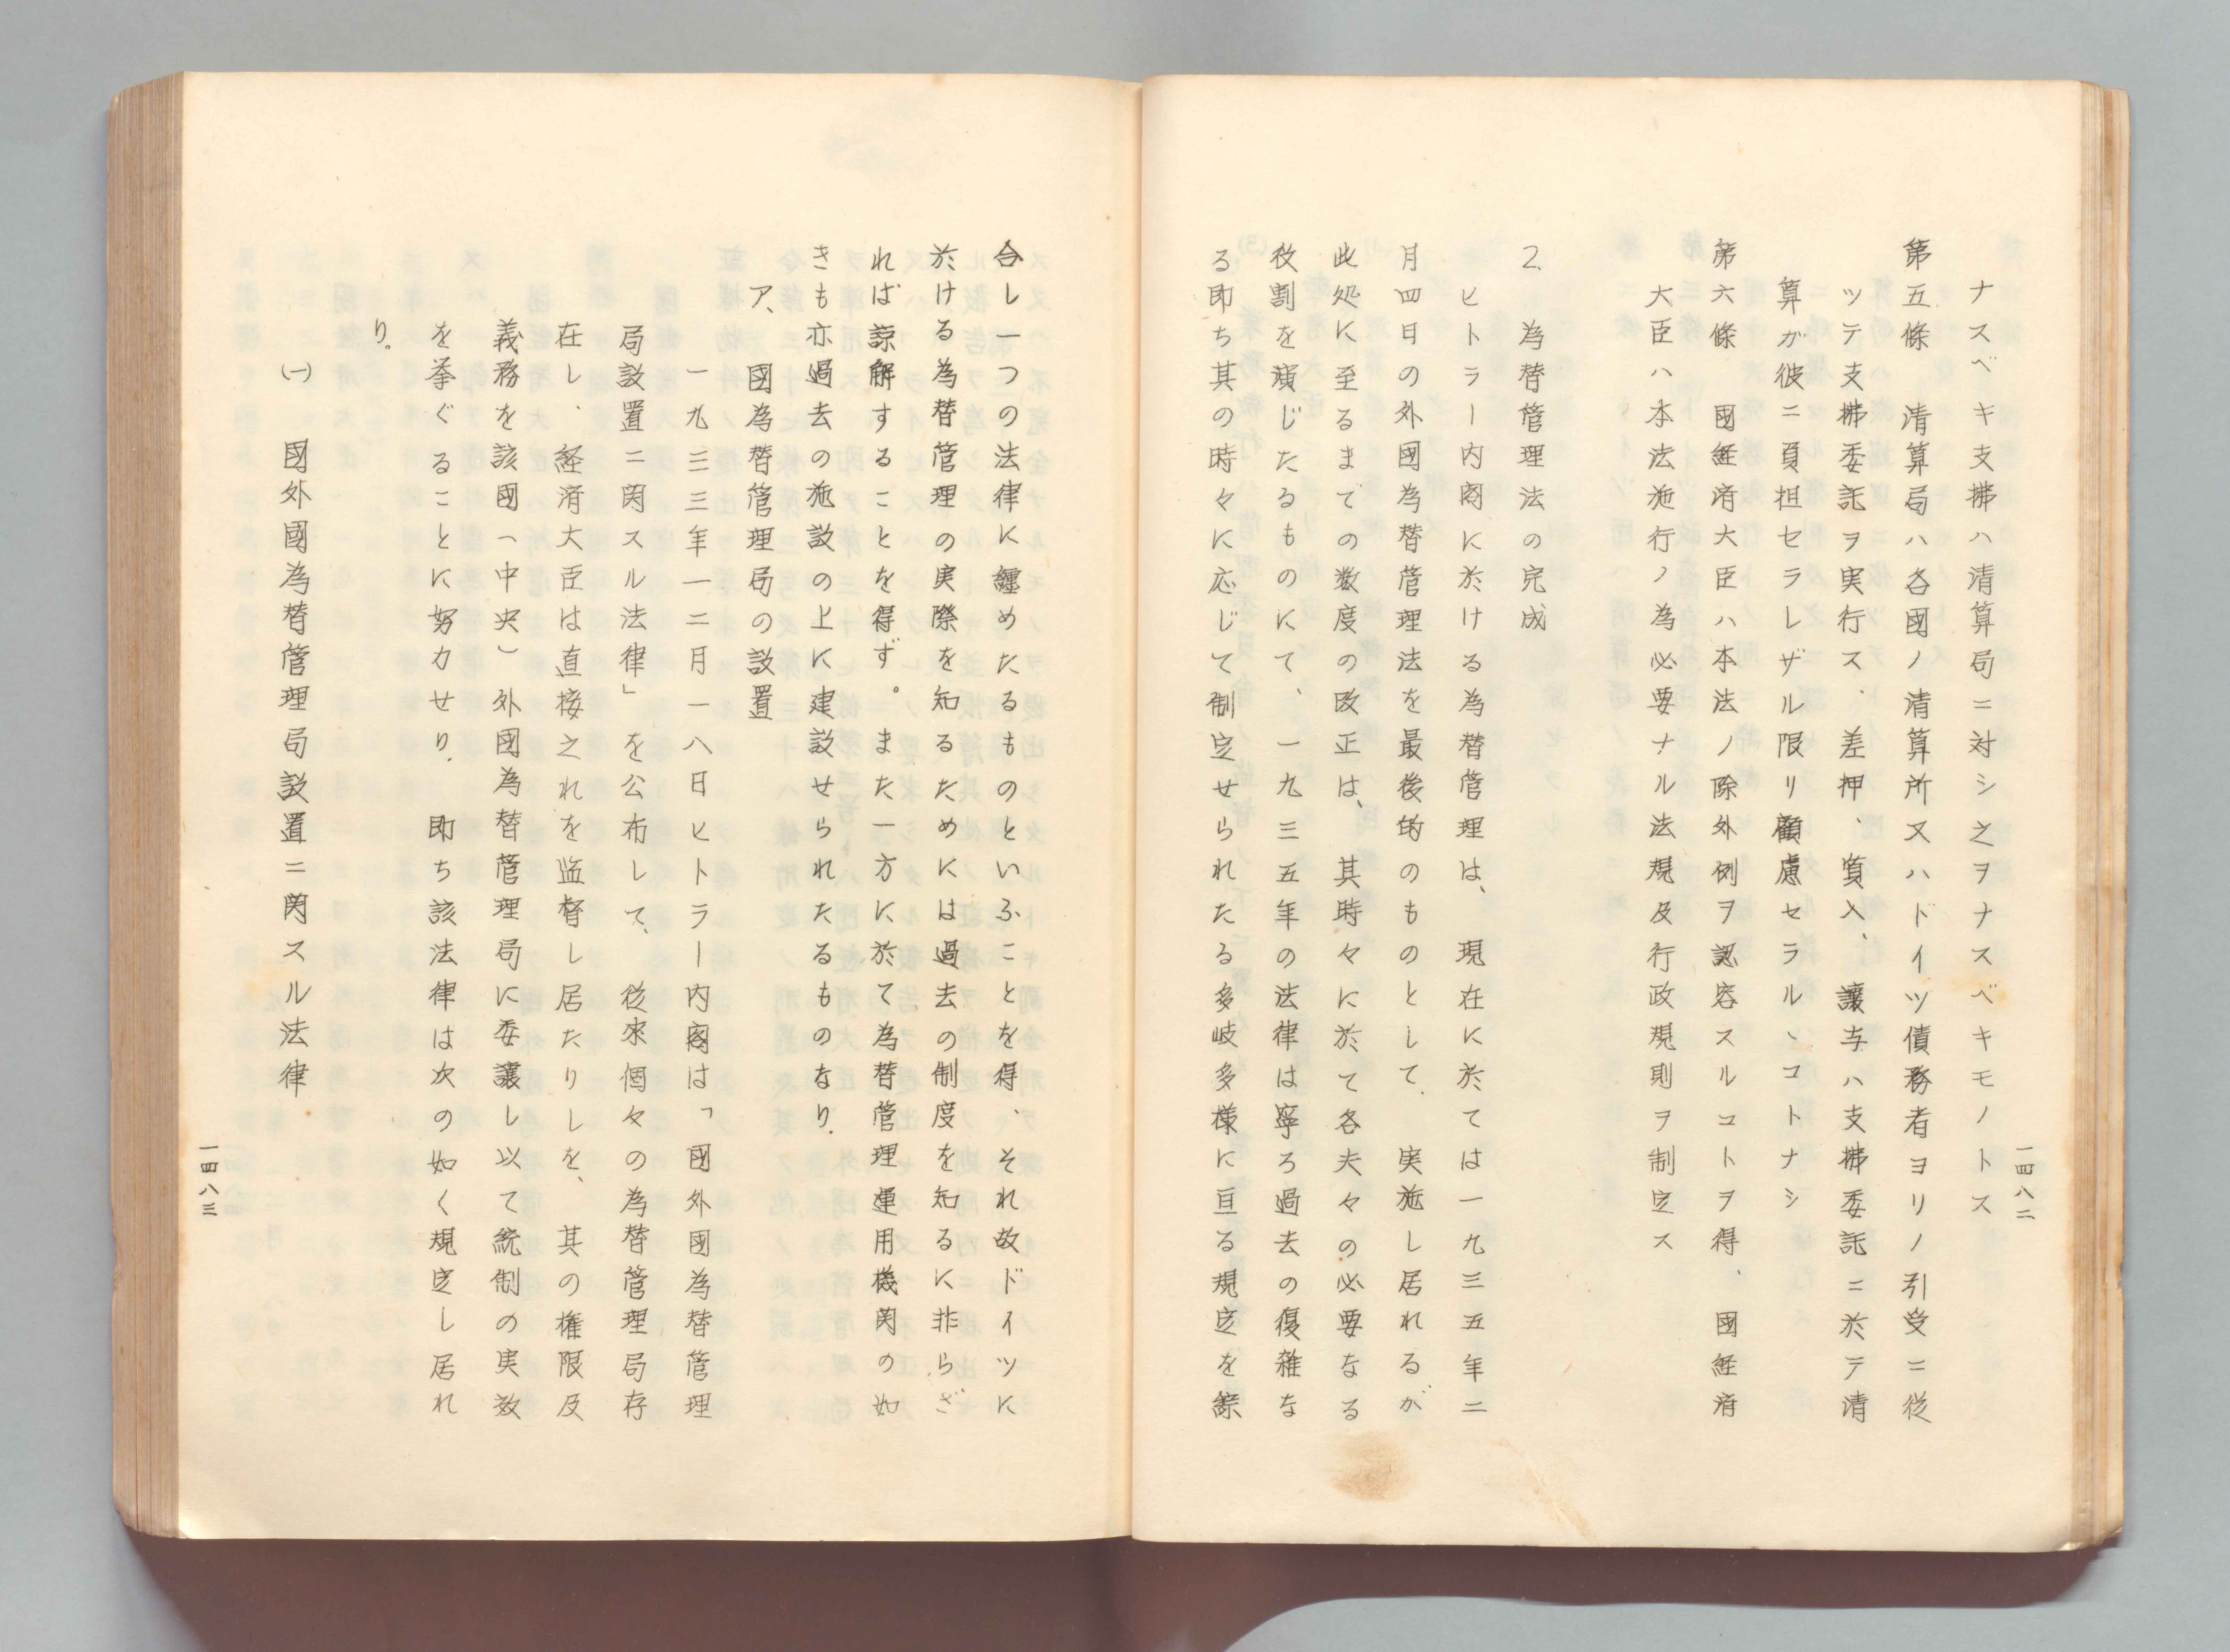 一四八二
ナスベキ支拂ハ清算局ニ対シ之ヲナスベキモノトス
第五條　清算局ハ各國ノ清算所又ハドイツ債務者ヨリノ引受ニ從
ツテ支拂委託ヲ実行ス、差押、質入、讓与ハ支拂委託ニ於テ清
算ガ彼ニ負担セラレザル限リ顧慮セラルヽコトナシ
第六條　國経済大臣ハ本法ノ除外例ヲ認容スルコトヲ得、國経済
大臣ハ本法施行ノ為必要ナル法規及行政規則ヲ制定ス
2、為替管理法の完成
ヒトラー内閣に於ける為替管理は、現在に於ては一九三五年二
月四日の外國為替管理法を最後的のものとして、実施し居れるが
此処に至るまでの数度の改正は、其時々に於て各夫々の必要なる
役割を演じたるものにて、一九三五年の法律は寧ろ過去の復雑な
る即ち其の時々に応じて制定せられたる多岐多様に亘る規定を綜
合し一つの法律に纏めたるものといふことを得、それ故ドイツに
於ける為替管理の実際を知るためには過去の制度を知るに非らざ
れば諒解することを得ず。また一方に於て為替管理運用機関の如
きも亦過去の施設の上に建設せられたるものなり、
ア、國為替管理局の設置
一九三三年一二月一八日ヒトラー内閣は「國外國為替管理
局設置ニ関スル法律」を公布して、從來個々の為替管理局存
在し、経済大臣は直接之れを監督し居たりしを、其の権限及
義務を該國（中央）外國為替管理局に委讓し以て統制の実效
を挙ぐることに努力せり、即ち該法律は次の如く規定し居れ
り。
(一)　國外國為替管理局設置ニ関スル法律
一四八三